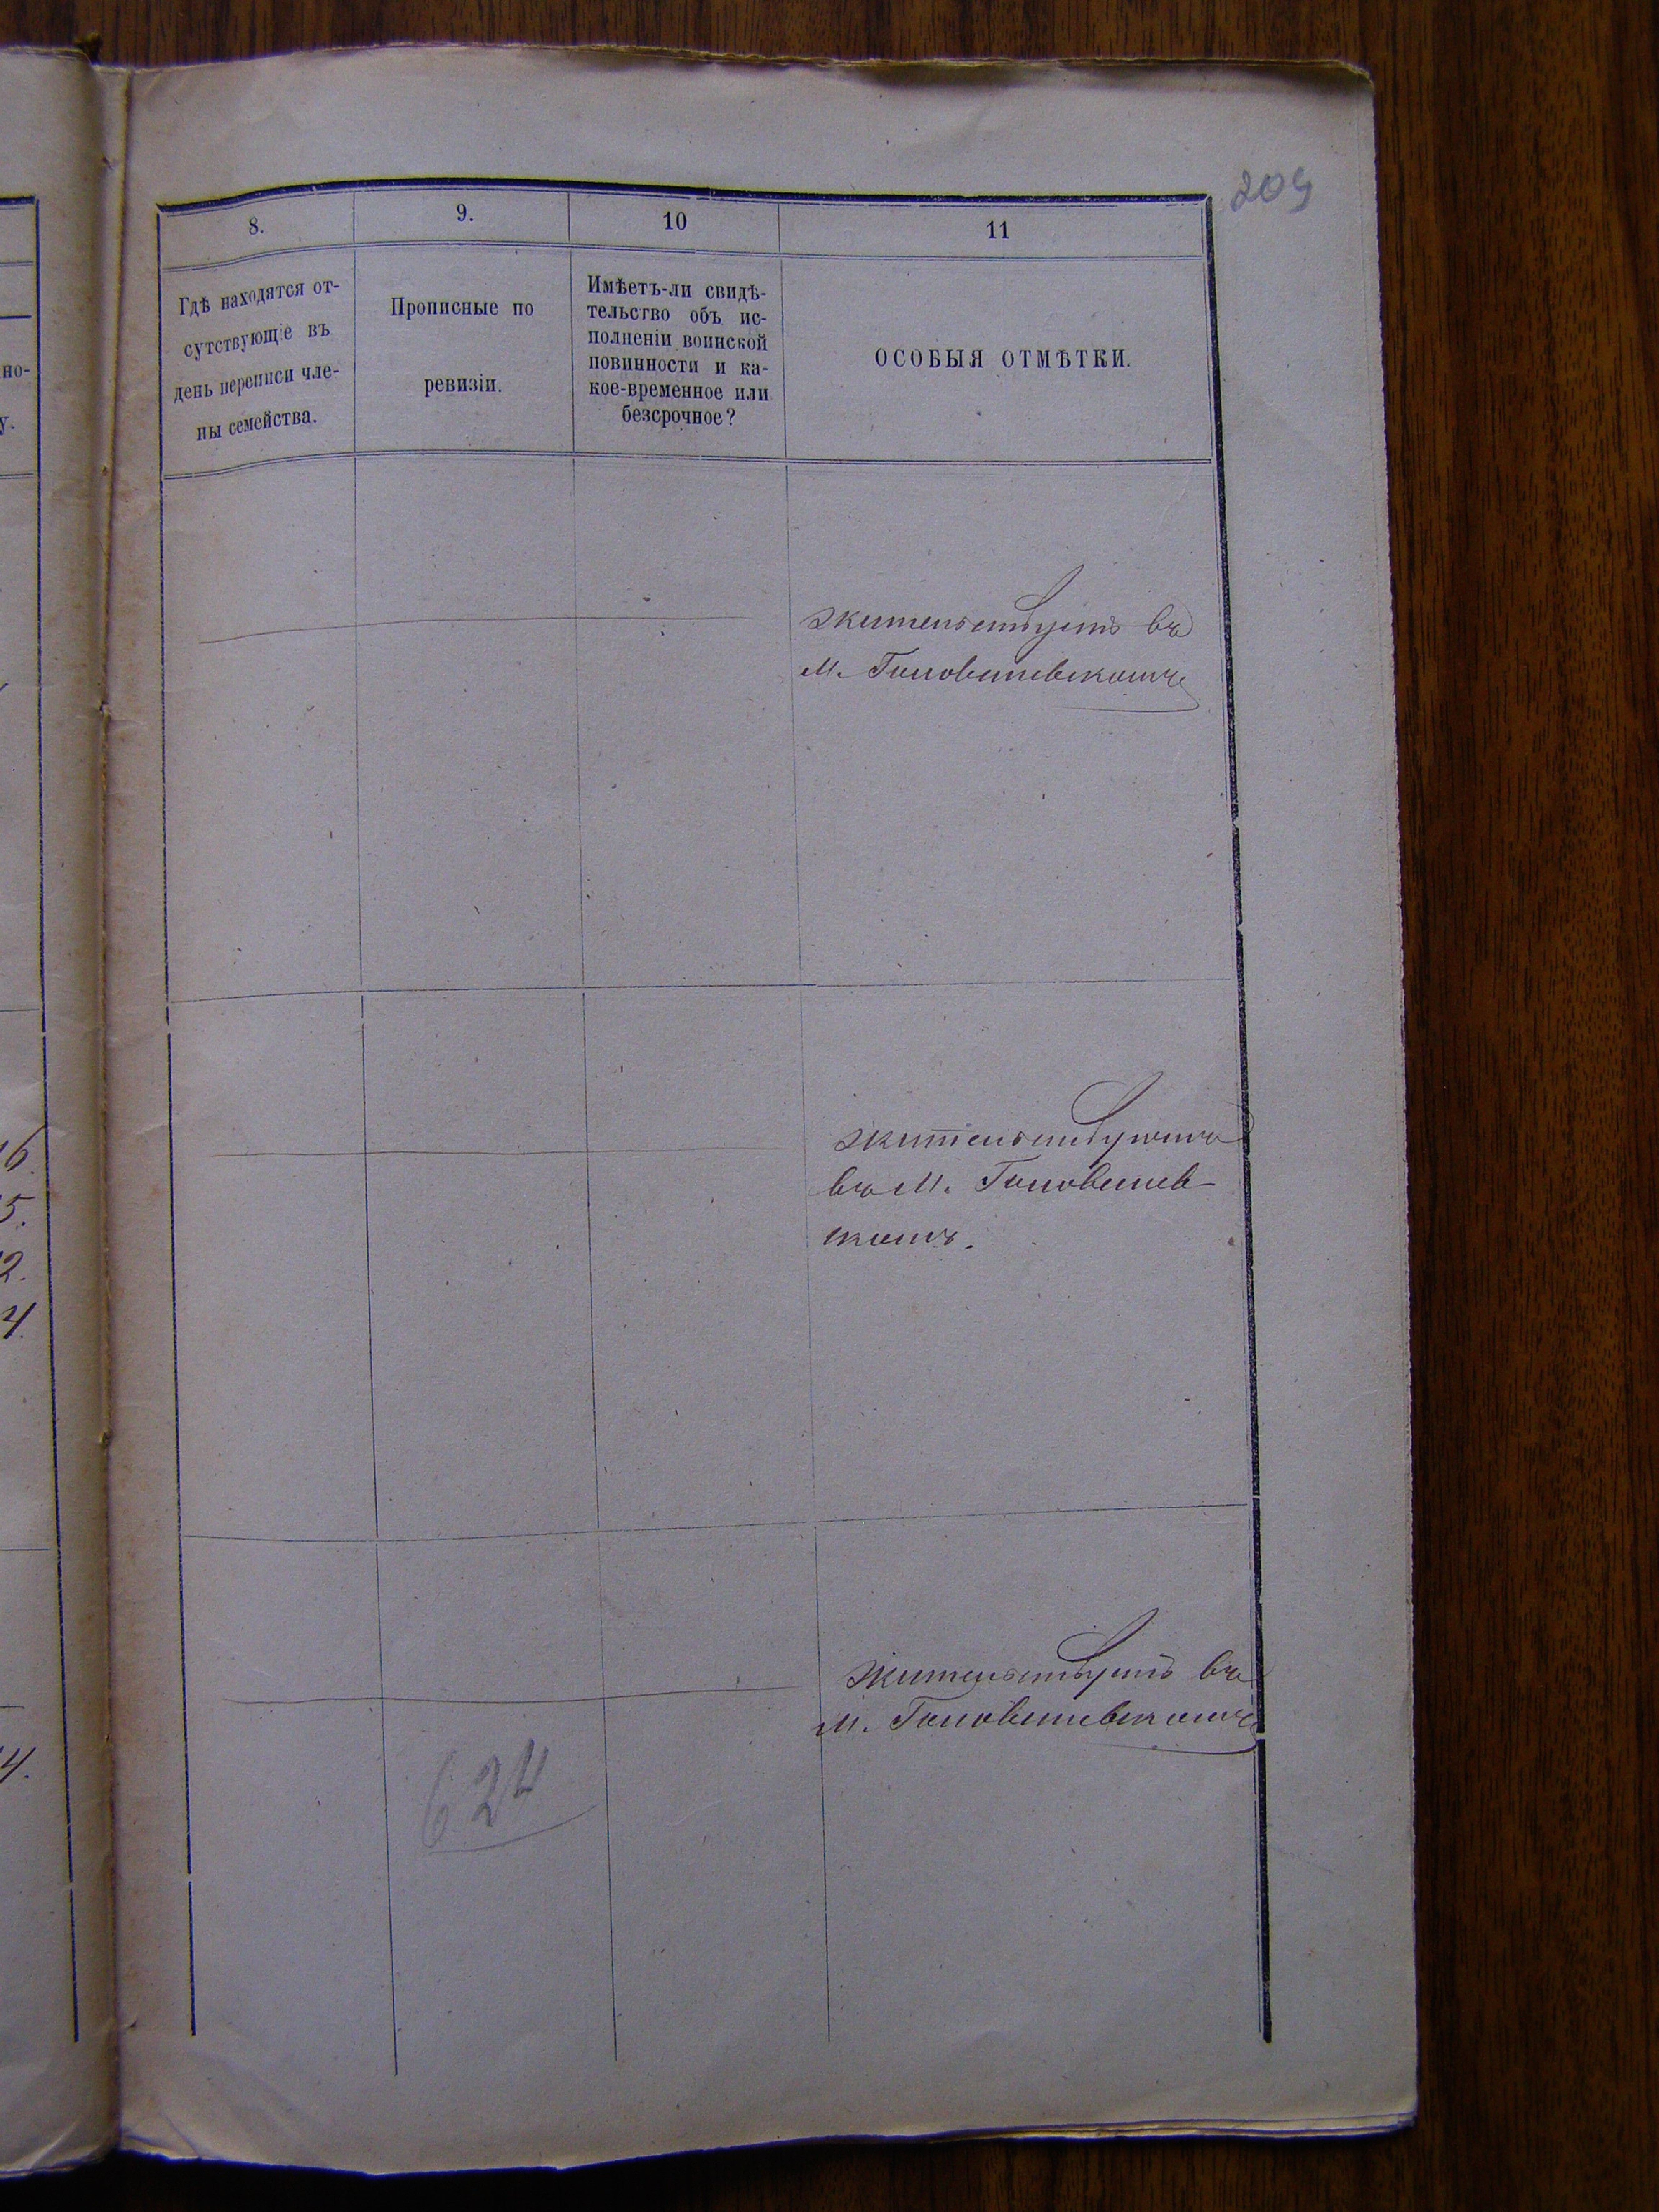 209
8. 9. 10 11
Гдѣ находятся от-
сутствующіе въ
день переписи чле-
ны семейства.
Прописные по
ревизіи.
Имѣетъ-ли свидѣ-
тельство объ ис-
полненіи воинской
повинности и ка-
кое-временное или
безсрочное?
ОСОБЫЯ ОТМѢТКИ.
но-
у.
жительствуетъ въ
м. Головчевскомъ
16.
5.
2.
4.
жительствуютъ
въ м. Головчев-
скомъ.
жительствуетъ въ
м. Головчевскомъ
4.
624